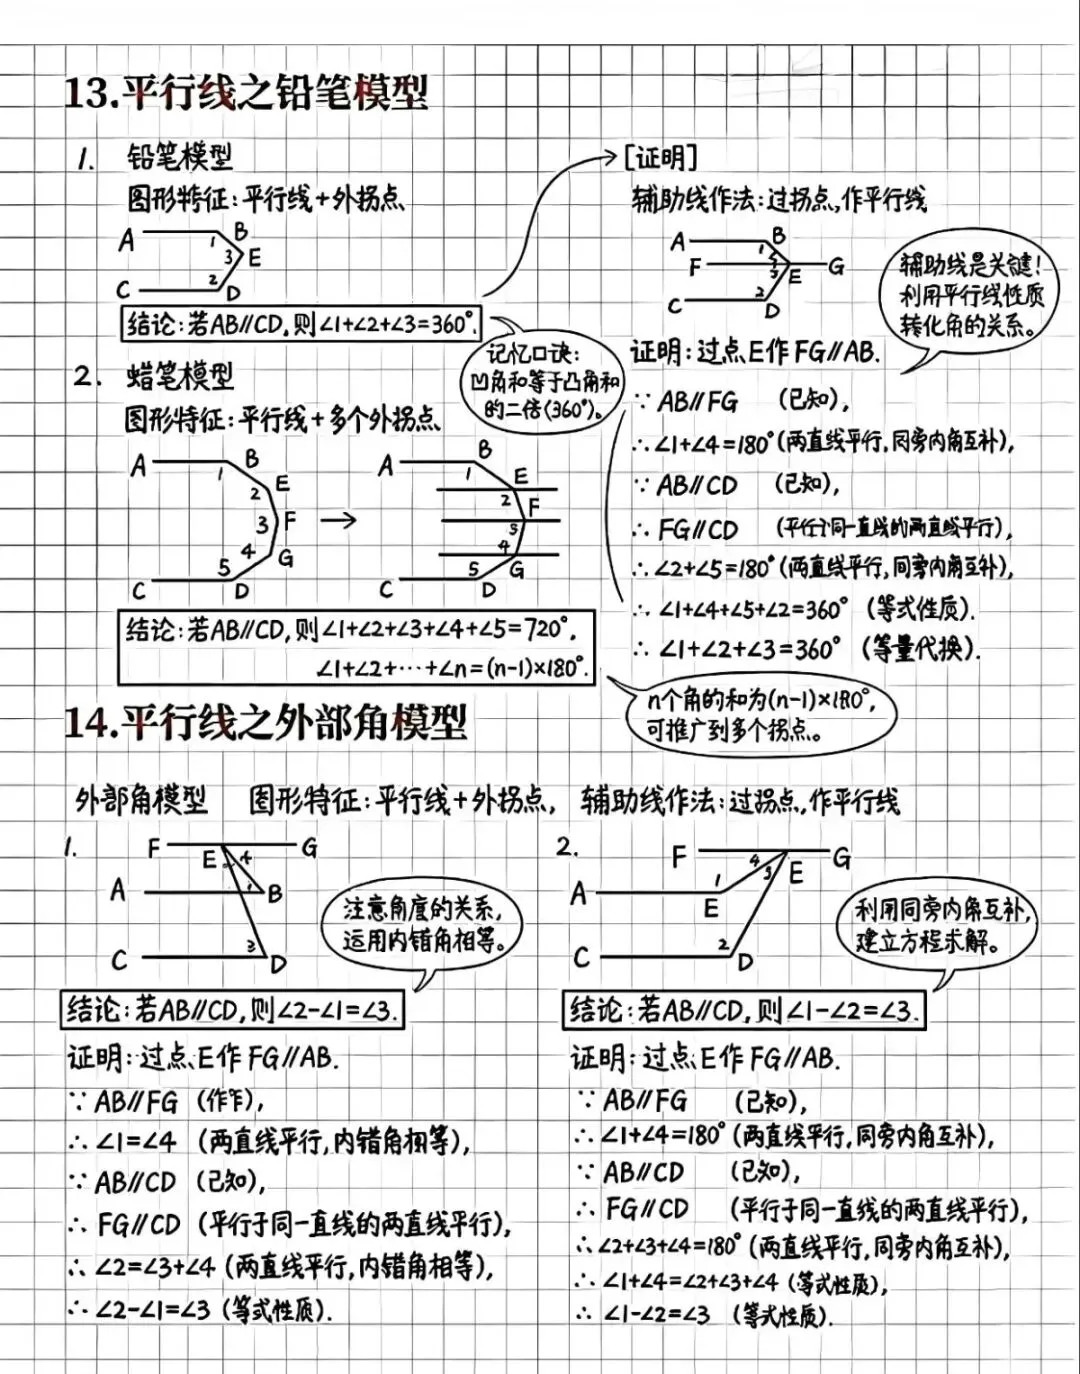 13.平行线之铅笔模型
1. 铅笔模型
图形特征:平行线+外拐点
A B
1
3 E
2
C D
结论:若AB∥CD,则∠1+∠2+∠3=360°.
[证明]
辅助线作法:过拐点,作平行线
A B
1
F 4 G
5 E
2
C D
辅助线是关键!
利用平行线性质
转化角的关系。
证明:过点E作FG∥AB.
∵ AB∥FG (已知),
∴ ∠1+∠4=180°(两直线平行,同旁内角互补),
∵ AB∥CD (已知),
∴ FG∥CD (平行于同一直线的两直线平行),
∴ ∠2+∠5=180°(两直线平行,同旁内角互补),
∴ ∠1+∠4+∠5+∠2=360° (等式性质).
∴ ∠1+∠2+∠3=360° (等量代换).
记忆口诀:
凹角和等于凸角和
的二倍(360°)。
2. 蜡笔模型
图形特征:平行线+多个外拐点
A B
1 E
2
3 F
4
5 G
C D
A B
1 E
2
F
3
4
5 G
C D
结论:若AB∥CD,则∠1+∠2+∠3+∠4+∠5=720°.
∠1+∠2+⋯+∠n=(n-1)×180°.
n个角的和为(n-1)×180°,
可推广到多个拐点。
14.平行线之外部角模型
外部角模型 图形特征:平行线+外拐点, 辅助线作法:过拐点,作平行线
1.
F G
E 4
A 1 B
3
C D
注意角度的关系,
运用内错角相等。
结论:若AB∥CD,则∠2-∠1=∠3.
证明:过点E作FG∥AB.
∵ AB∥FG (作乍),
∴ ∠1=∠4 (两直线平行,内错角相等),
∵ AB∥CD (已知),
∴ FG∥CD (平行于同一直线的两直线平行),
∴ ∠2=∠3+∠4 (两直线平行,内错角相等),
∴ ∠2-∠1=∠3 (等式性质).
2.
F G
4
3 E
A 1
E
2
C D
利用同旁内角互补,
建立方程求解。
结论:若AB∥CD,则∠1-∠2=∠3.
证明:过点E作FG∥AB.
∵ AB∥FG (已知),
∴ ∠1+∠4=180°(两直线平行,同旁内角互补),
∵ AB∥CD (已知),
∴ FG∥CD (平行于同一直线的两直线平行),
∴ ∠2+∠3+∠4=180°(两直线平行,同旁内角互补),
∴ ∠1+∠4=∠2+∠3+∠4 (等式性质),
∴ ∠1-∠2=∠3 (等式性质).